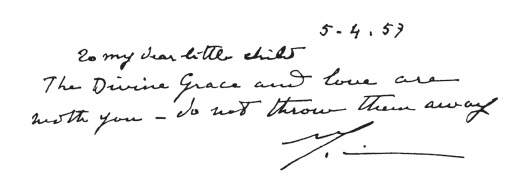 5-4.57
To my dear little child
The Divine Grace and love are
with you - do not throw them away